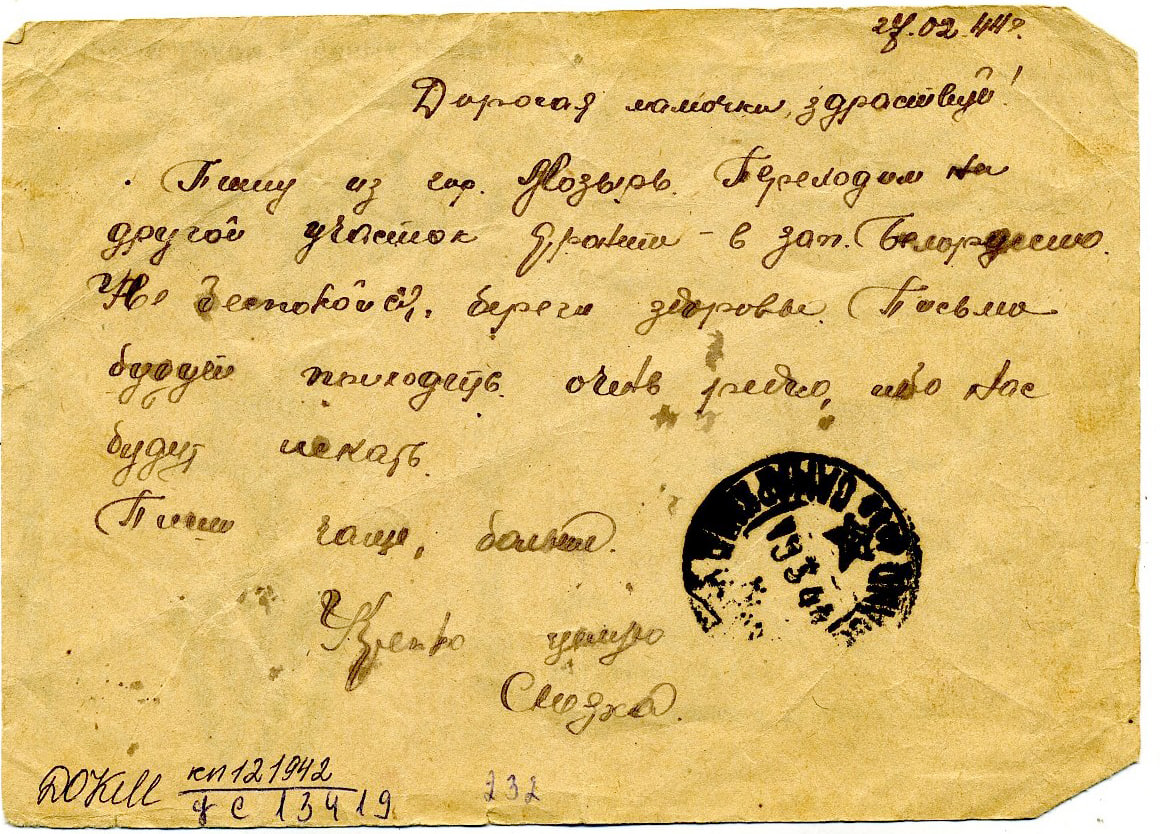 27.02.44г.
Дорогая мамочка, здраствуй!
Пишу из гор. Мозырь. Переходим на
другой участок фронта - в зап. Белоруссию.
Не беспокойся, береги здоровье. Письма
будут приходить очень редко, ибо нас
будут искать.
Пиши чаще, больше.
Крепко целую
19 3 44
ДОКМ кп 121942
дс 13419
232